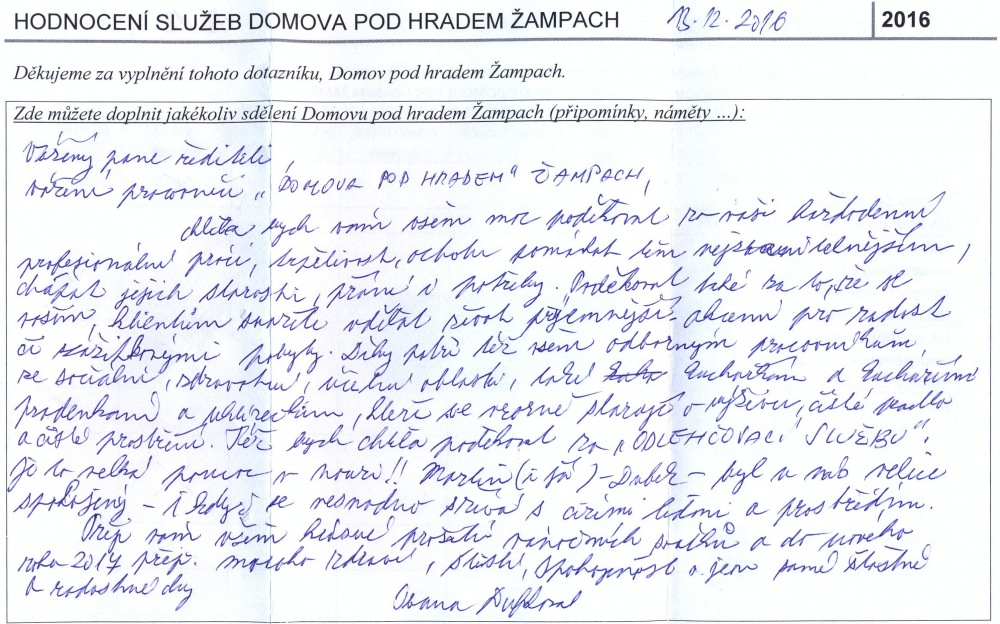 HODNOCENÍ SLUŽEB DOMOVA POD HRADEM ŽAMPACH 13.12.2016 2016
Děkujeme za vyplnění tohoto dotazníku, Domov pod hradem Žampach.
Zde můžete doplnit jakékoliv sdělení Domovu pod hradem Žampach (připomínky, náměty ...):
Vážený pane řediteli,
vážení pracovníci „DOMOVA POD HRADEM" ŽAMPACH,
chtěla bych vám všem moc poděkovat za vaši každodenní
profesionální práci, trpělivost, ochotu pomáhat těm nejzranitelnějším,
chápat jejich starosti, přání i potřeby. Poděkovat také za to, že se
vašim klientům snažíte udělat život příjemnější - akcemi pro radost
či zážitkovými pobyty. Díky patří též všem odborným pracovníkům
ze sociální, zdravotní, oblasti, také kuchařkám a kuchařům
pradlenkám a uklízečkám, kteří se vzorně starají o výživu, čisté prádlo
a čisté prostředí. Též bych chtěla poděkovat za „ODLEHČOVACÍ SLUŽBU".
Je to velká pomoc v nouzi!! Martin (i já) - - byl u vás velice
spokojený - i když se nesnadno strává s cizími lidmi a prostředím.
Přeji vám všem krásné prožití vánočních svátků a do nového
roku 2017 přeji mnoho zdraví, štěstí, spokojenosti a jen samé šťastné
a radostné dny
Ivana